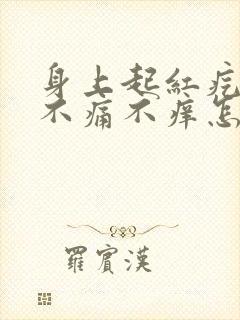 身上起紅疙
不痛不痒怎
羅賓漢